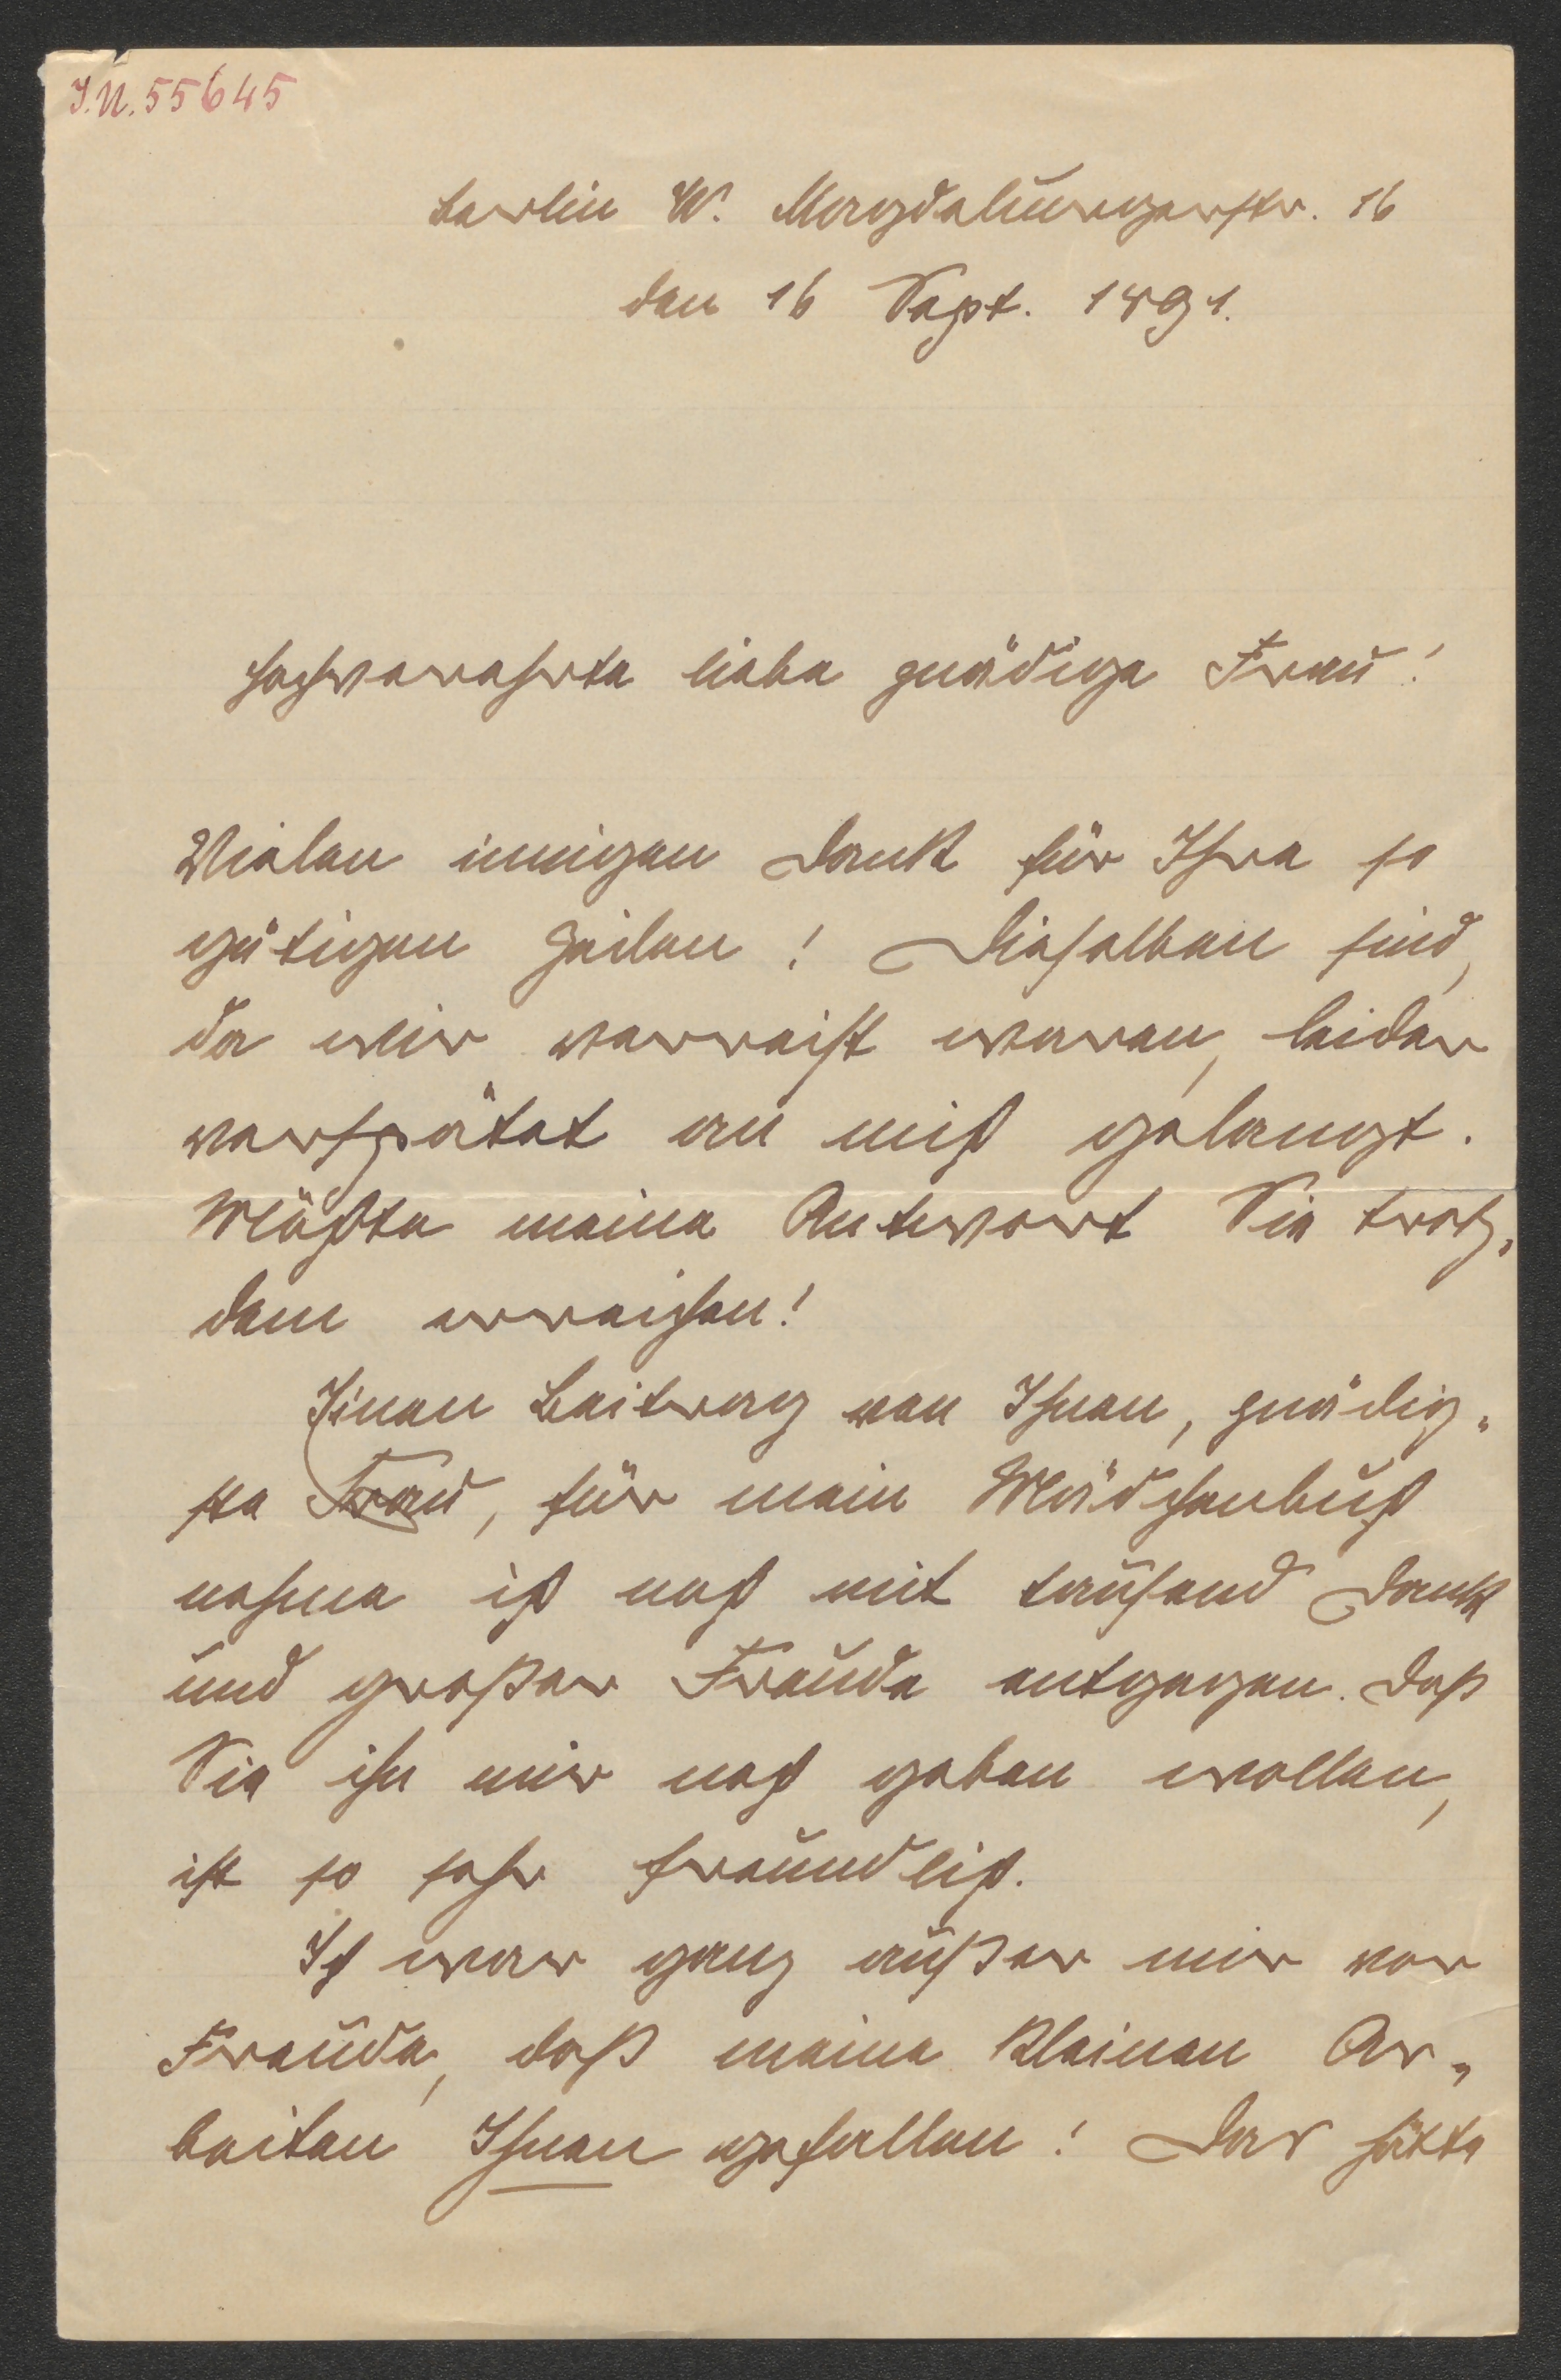 I.N. 55645
Berlin W. Magdeburgerstr. 16
den 16 Sept. 1891.
Hochverehrte liebe gnädige Frau!
Vielen innigen Dank für Ihre so
gütigen Zeilen! Dieselben sind,
da wir verreist waren, leider
verspätet an mich gelangt.
Möchte meine Antwort Sie trotz„
dem erreichen!
Einen Beitrag von Ihnen, gnädig„
ste Frau, für mein Mädchenbuch
nehme ich noch mit tausend Dank
und großer Freude entgegen. Daß
Sie ihn mir noch geben wollen,
ist so sehr freundlich.
Ich war ganz außer mir vor
Freude, daß meine kleinen Ar„
beiten Ihnen gefallen! Das hätte